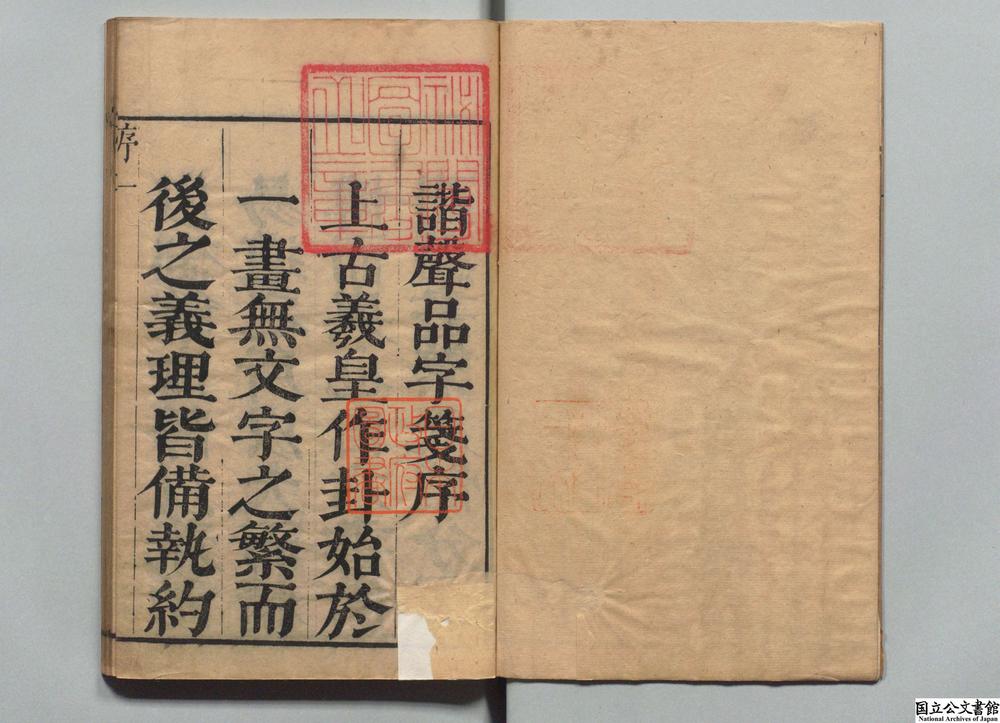 諧聲品字箋序
上古羲皇作卦始於
一畫無文字之繁而
後之義理皆備執約
序
一
国立公文書館
National Archives of Japan